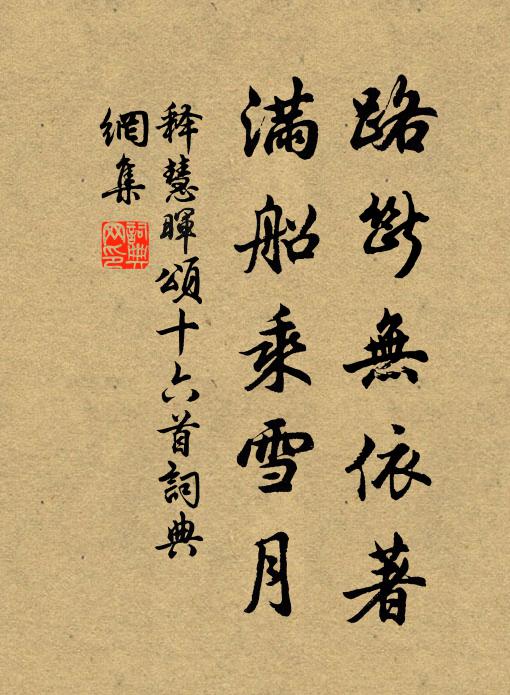 路斷無依著
滿船乘雪月
釋慧暉頌十六首詞典
網集
詞典
网印